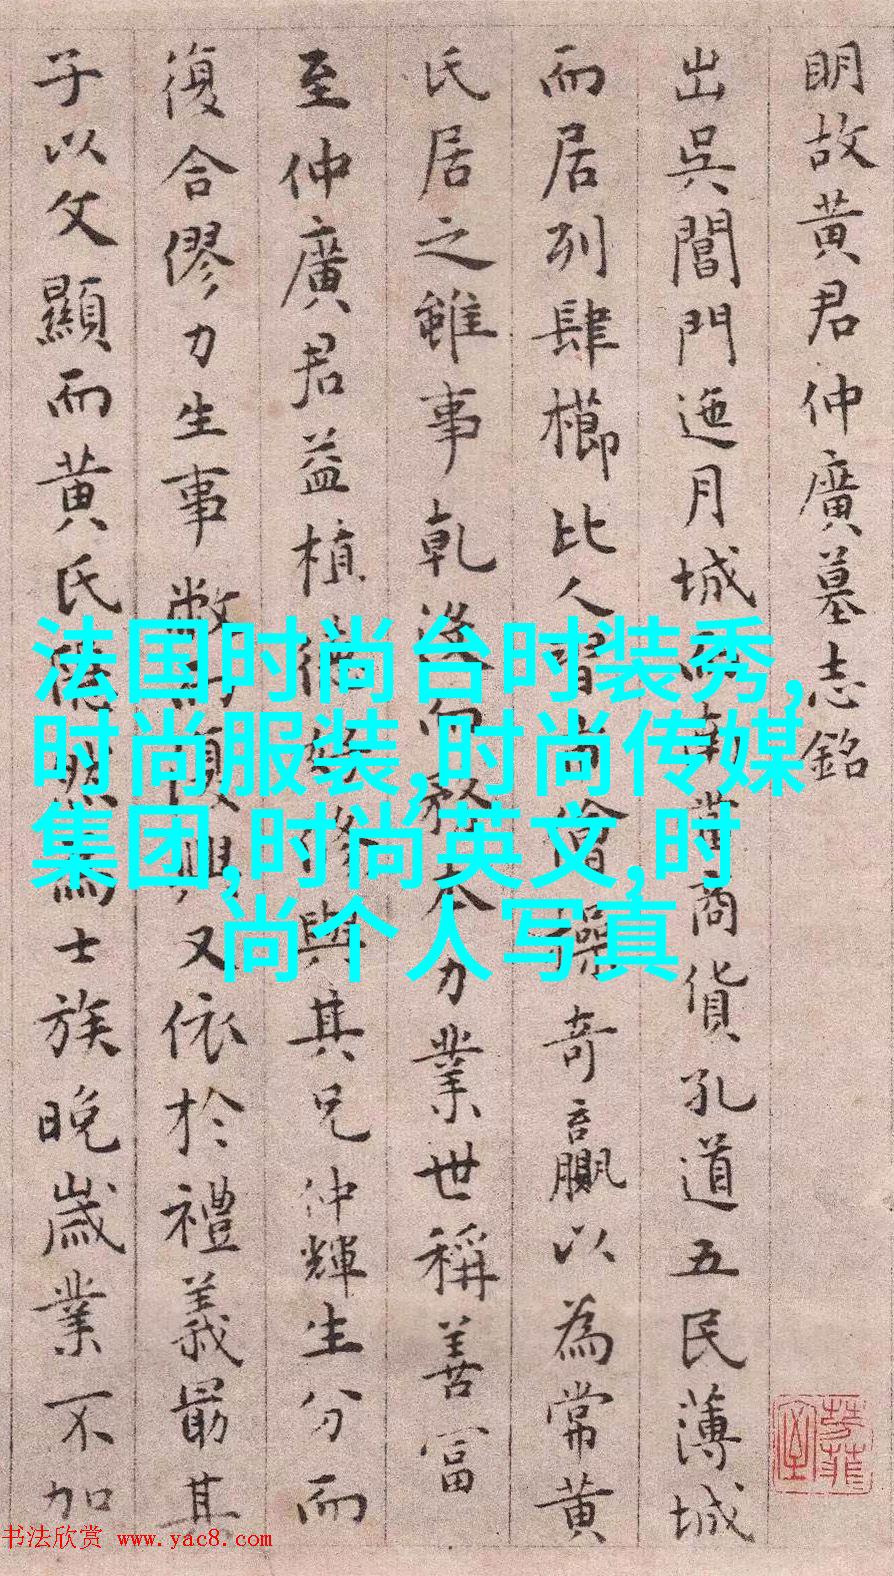 明故黄君仲廣墓志銘
出吳閶門迤月城而南當商貨孔道五民薄城
而居列肆櫛比人習市儈操奇贏以為常黄
氏居之雖事乾没而務本力業世稱善富
至仲廣君益植德好修與其兄仲輝生分而
復合僇力生事幣而復興又依於禮義最其
子以文顯而黄氏隱然為士族晚歲業不加
法国时尚台时装秀,
时尚服装,时尚传媒
集团,时尚英文,时
尚个人写真
书法欣赏 www.yac8.com